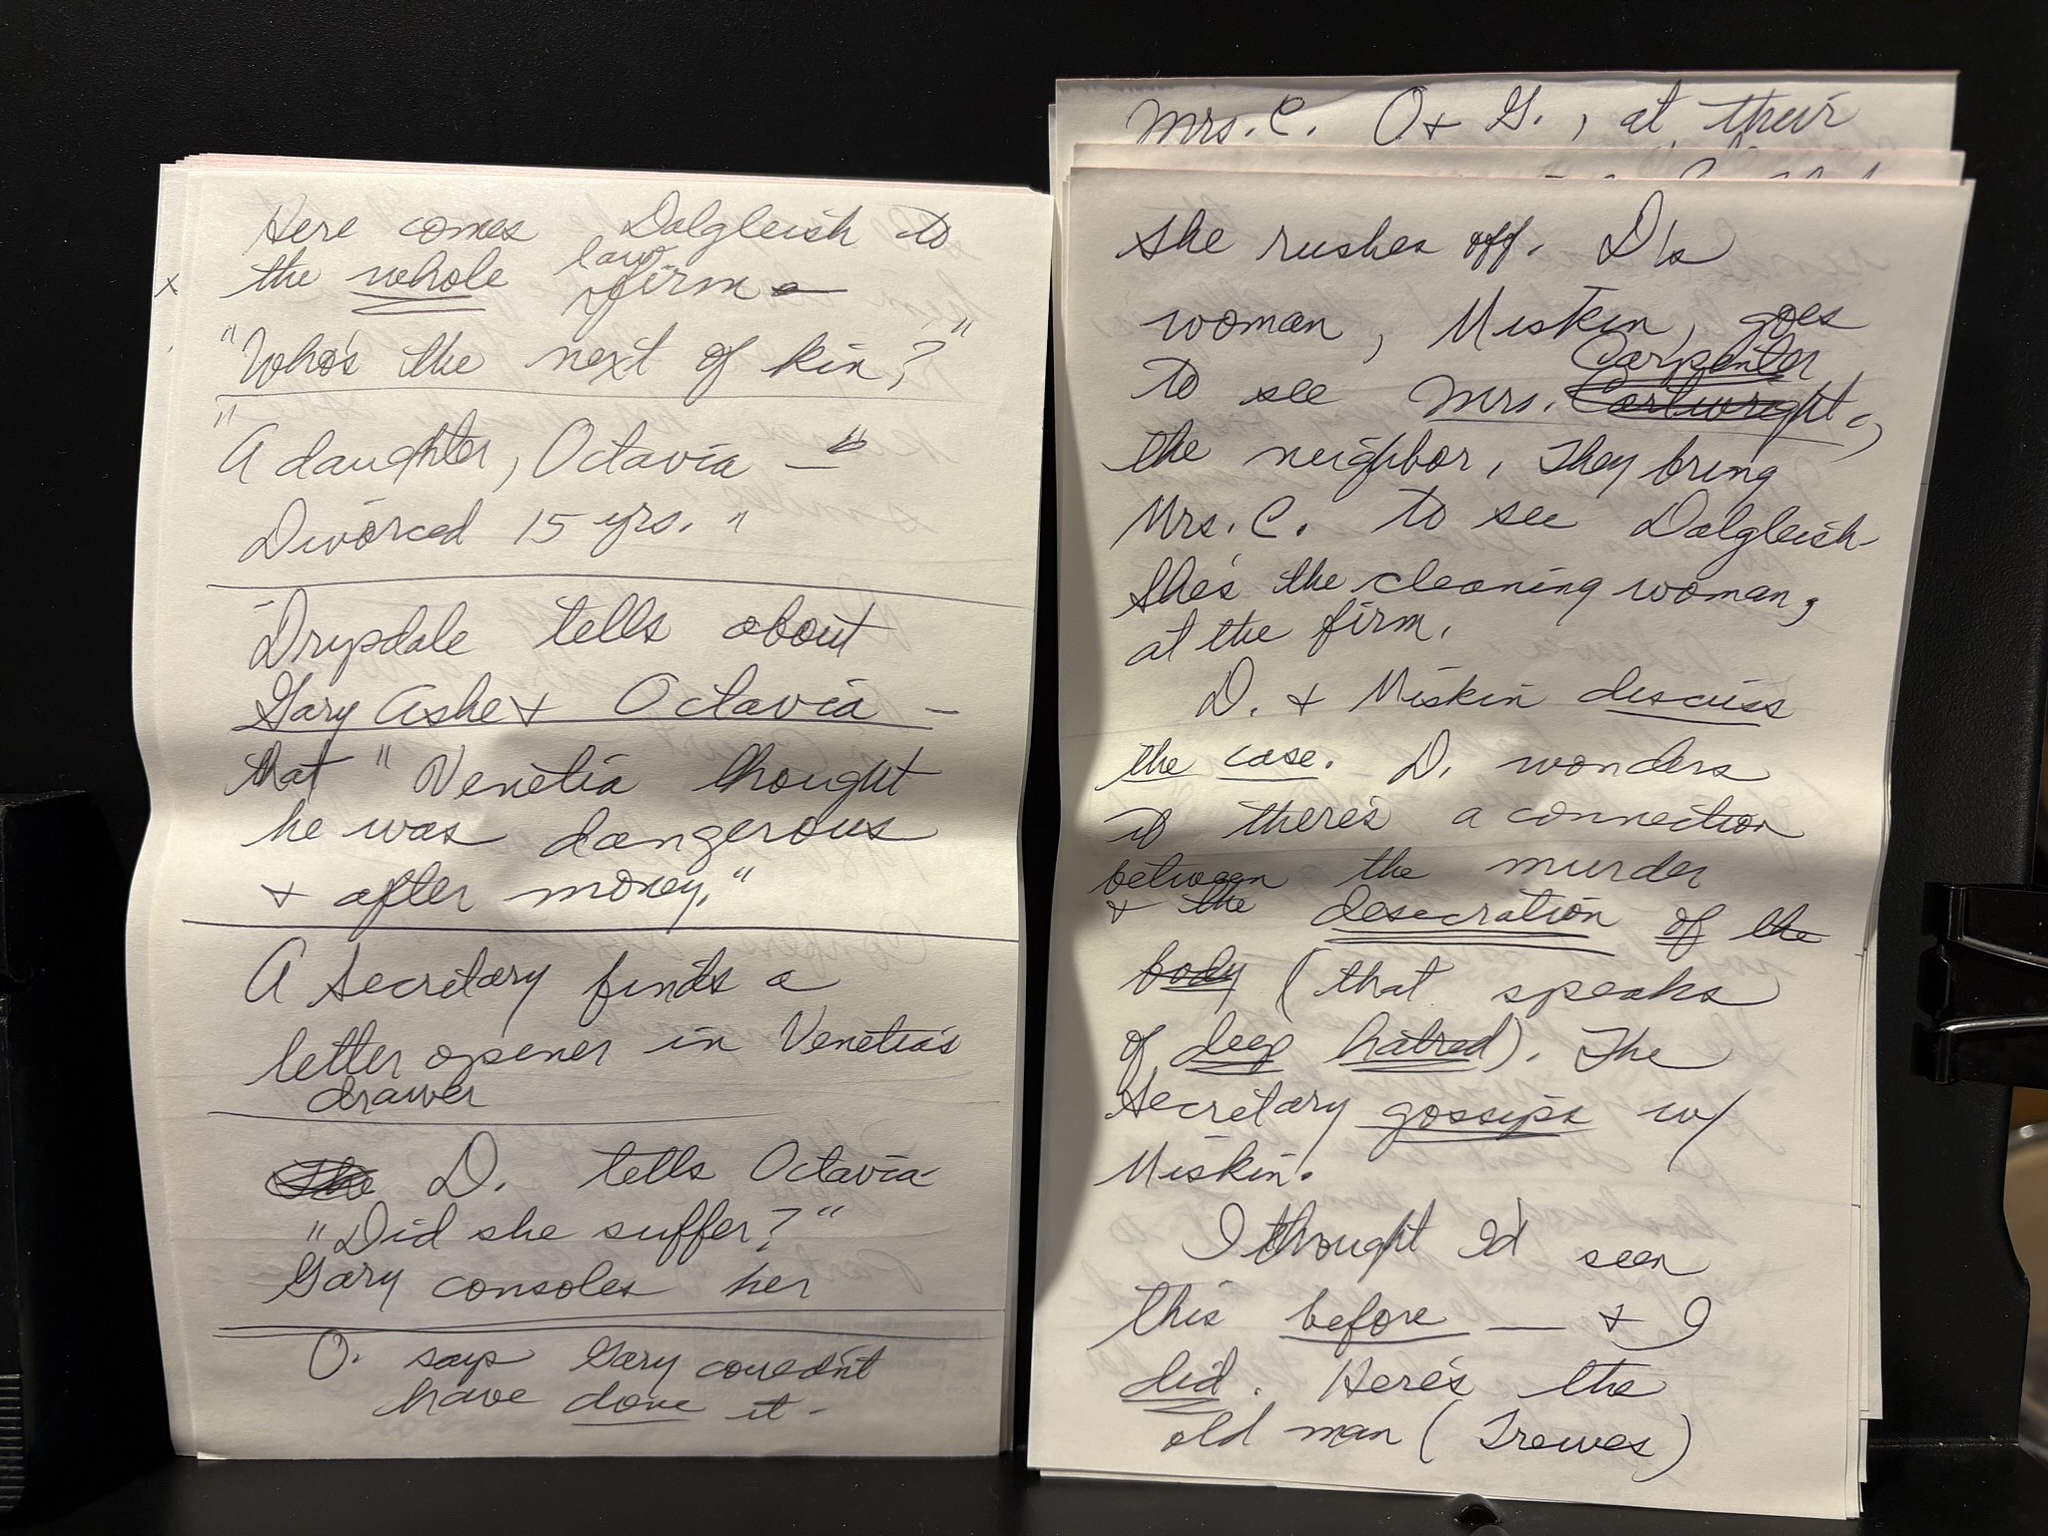 Here comes Dalgleish to
the whole law firm
x
"Who's the next of kin?"
"A daughter, Octavia —"
Divorced 15 yrs."
Drysdale tells about
Gary Ashe + Octavia —
that "Venetia thought
he was dangerous
+ after money."
A secretary finds a
letter opener in Venetia's
drawer
The D. tells Octavia
"Did she suffer?"
Gary consoles her
O. says Gary couldn't
have done it.
Mrs. C. O + G., at their
she rushes off. D's
woman, Miskin, goes
Carpenter
to see Mrs. Cartwright,
the neighbor. They bring
Mrs. C. to see Dalgleish
She's the cleaning woman,
at the firm.
D. + Miskin discuss
the case. D. wonders
if there's a connection
between the murder
+ the desecration of the
body (that speaks
of deep hatred). The
secretary gossips w/
Miskin.
I thought I'd seen
this before — + I
did. Here's the
old man (Trewes)